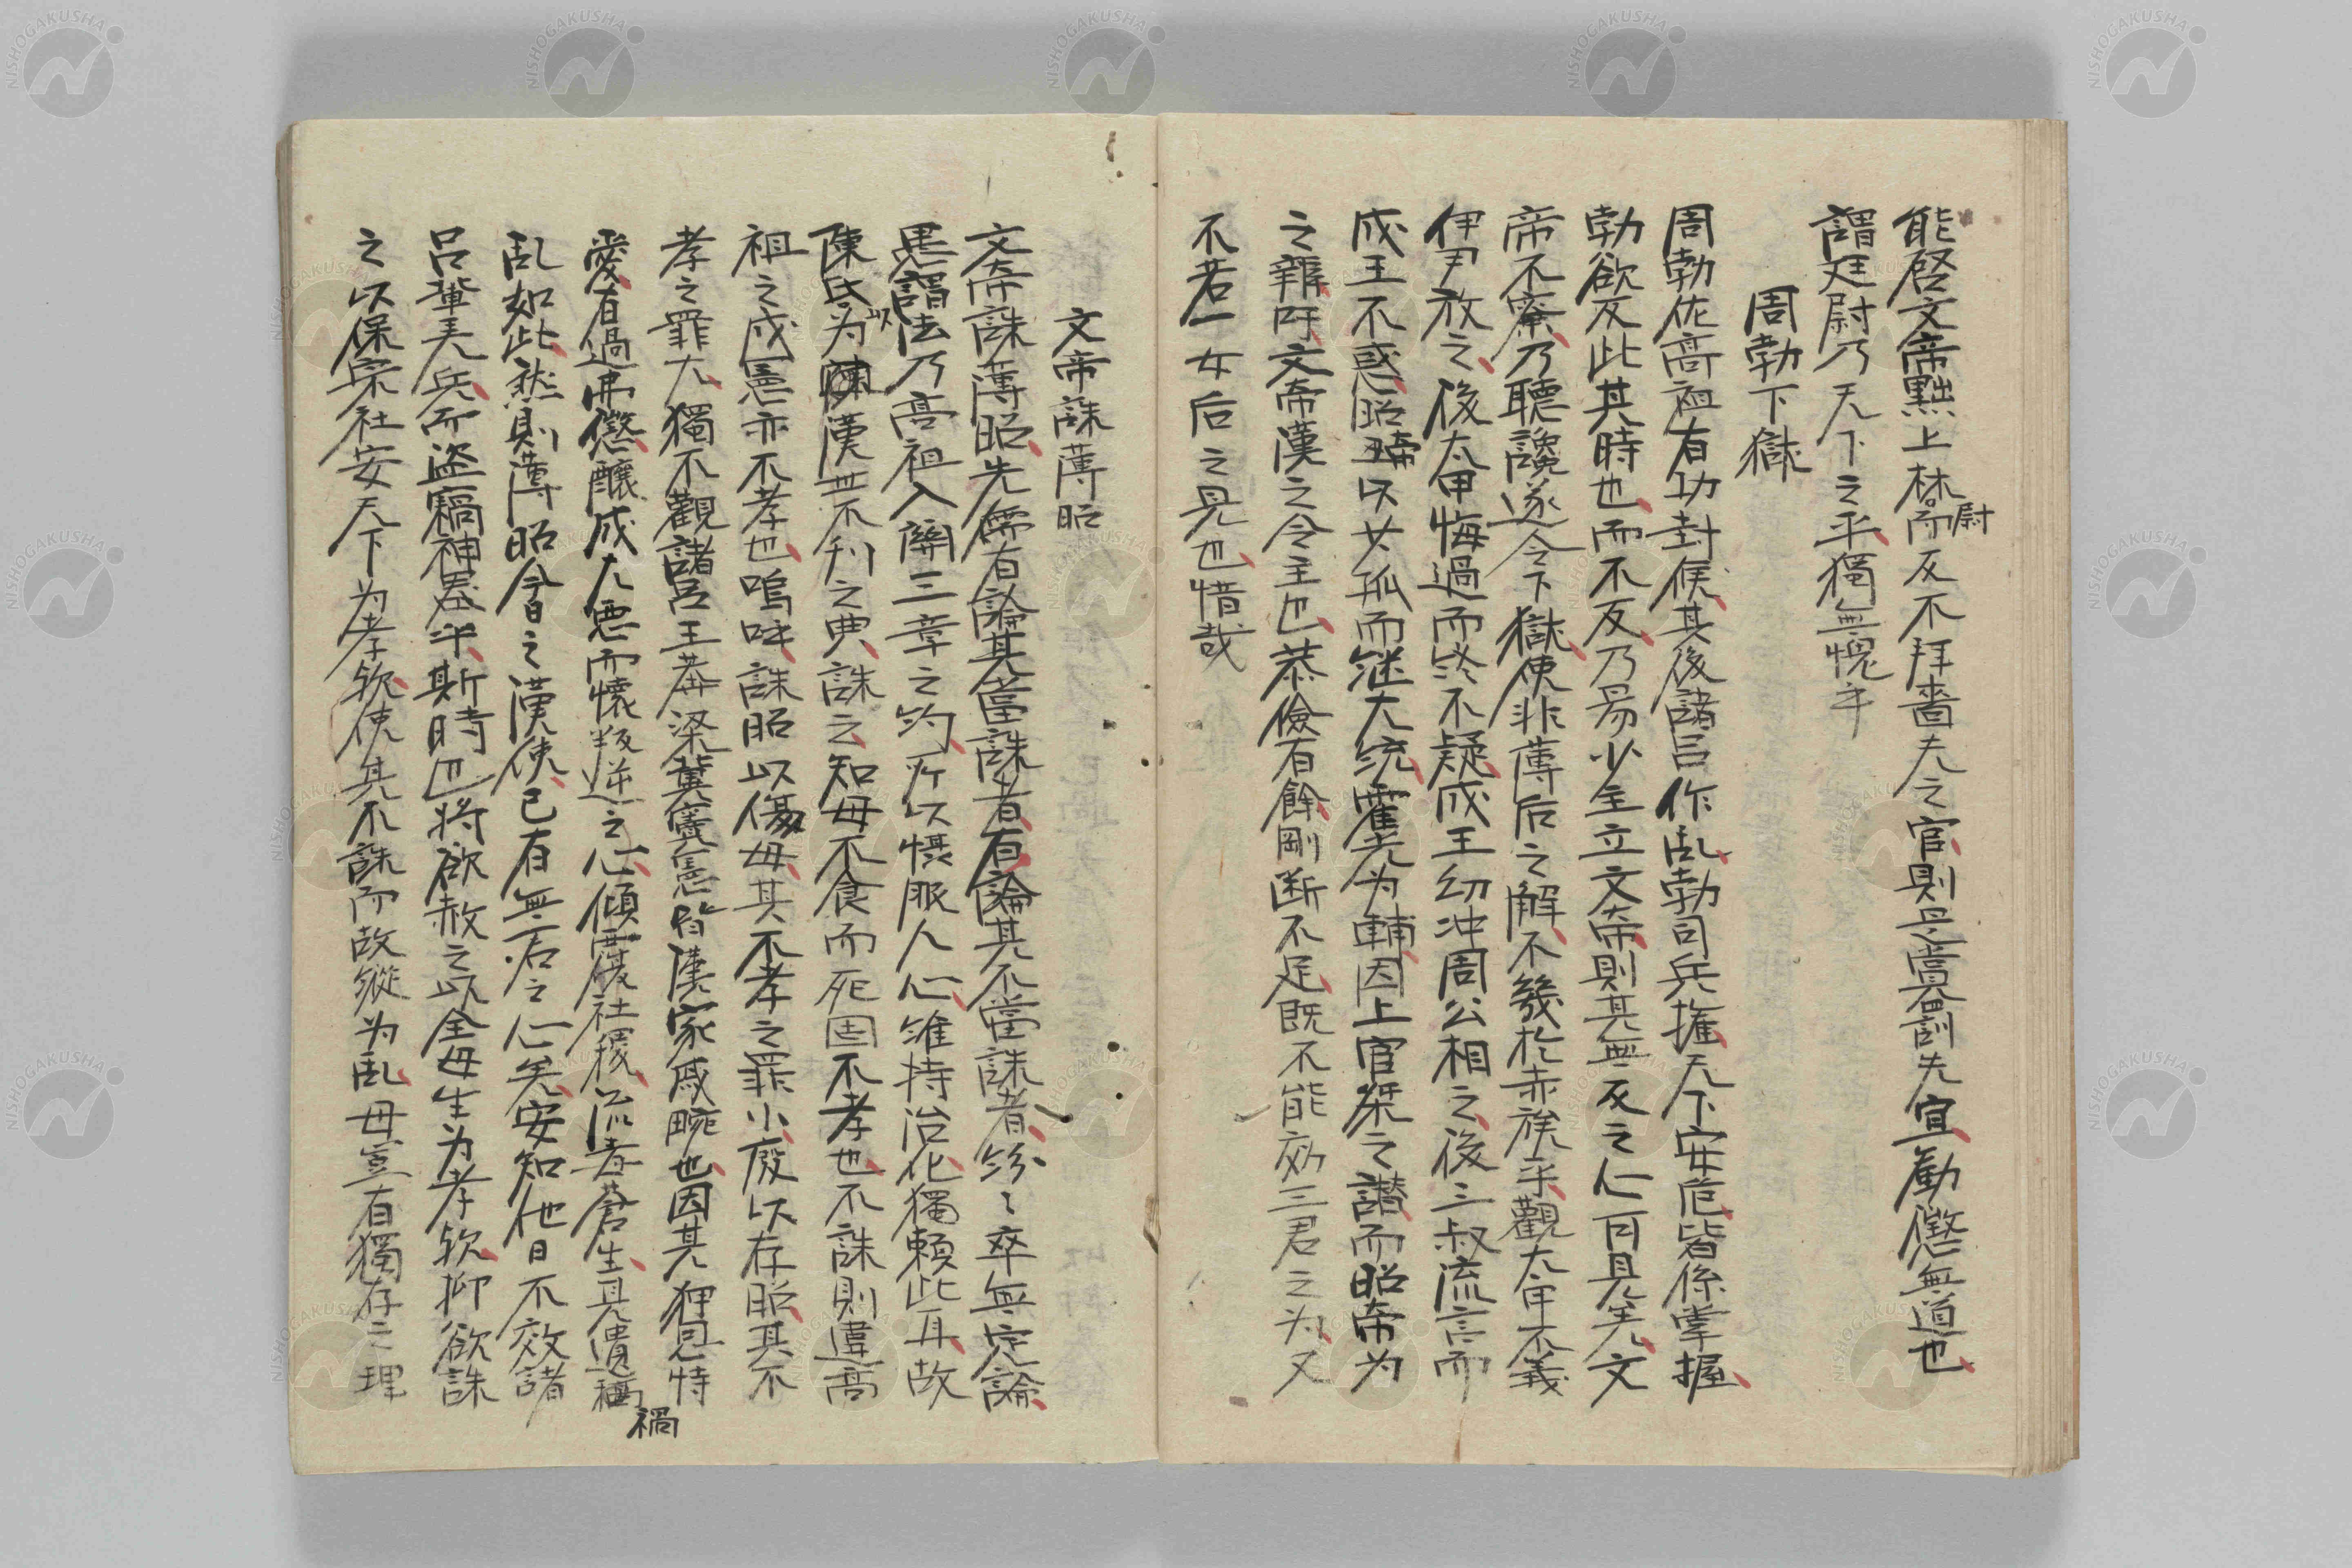 能啓文帝黜上林尉而反不拜嗇夫之官則是賞罰先宜勸懲無道也
謂廷尉乃天下之平獨無愧乎
周勃下獄
周勃佐高祖有功封侯其後諸呂作乱勃司兵権天下安危皆係掌握
勃欲反此其時也而不反乃易少主立文帝則其無反之心可見矣文
帝不察乃聽讒遂令下獄使非薄后之解不幾於赤族乎觀太甲不義
伊尹放之後太甲悔過而終不疑成王幼冲周公相之後三叔流言而
成王不惑昭帝以女孤而継大統霍光為輔因上官桀之譖而昭帝為
之辨吁文帝漢之令主也恭儉有餘剛断不足既不能效三君之為又
不若一女后之見也惜哉
文帝誅薄昭
文帝誅薄昭先儒有論其當誅者有論其不當誅者紛〻卒無定論
愚謂法乃高祖入關三章之約所以懐服人心維持治化獨頼此耳故
陳氏以為漢世不刊之典誅之知母不食而死固不孝也不誅則違高
祖之成憲亦不孝也嗚呼誅昭以傷母其不孝之罪小廢以存昭其不
孝之罪大獨不觀諸呂王莽梁冀竇憲皆漢家戚畹也因其狎恩恃
愛有過弗懲釀成大悪而懐叛逆之心傾覆社稷流毒蒼生具遺禍
乱如此然則薄昭今日之漢使已有無君之心矣安知他日不效諸
呂輩弄兵而盗竊神器乎斯時也将欲赦之以全母生為孝歟抑欲誅
之以保宗社安天下為孝歟使其不誅而故縦為乱母豈有獨存之理
NISHOGAKUSHA